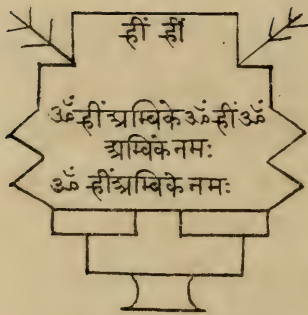 ह्रीं ह्रीं
ॐ ह्रीं अम्बिके ॐ ह्रीं ॐ
अम्बिकं नमः
ॐ ह्रीं अम्बिके नमः